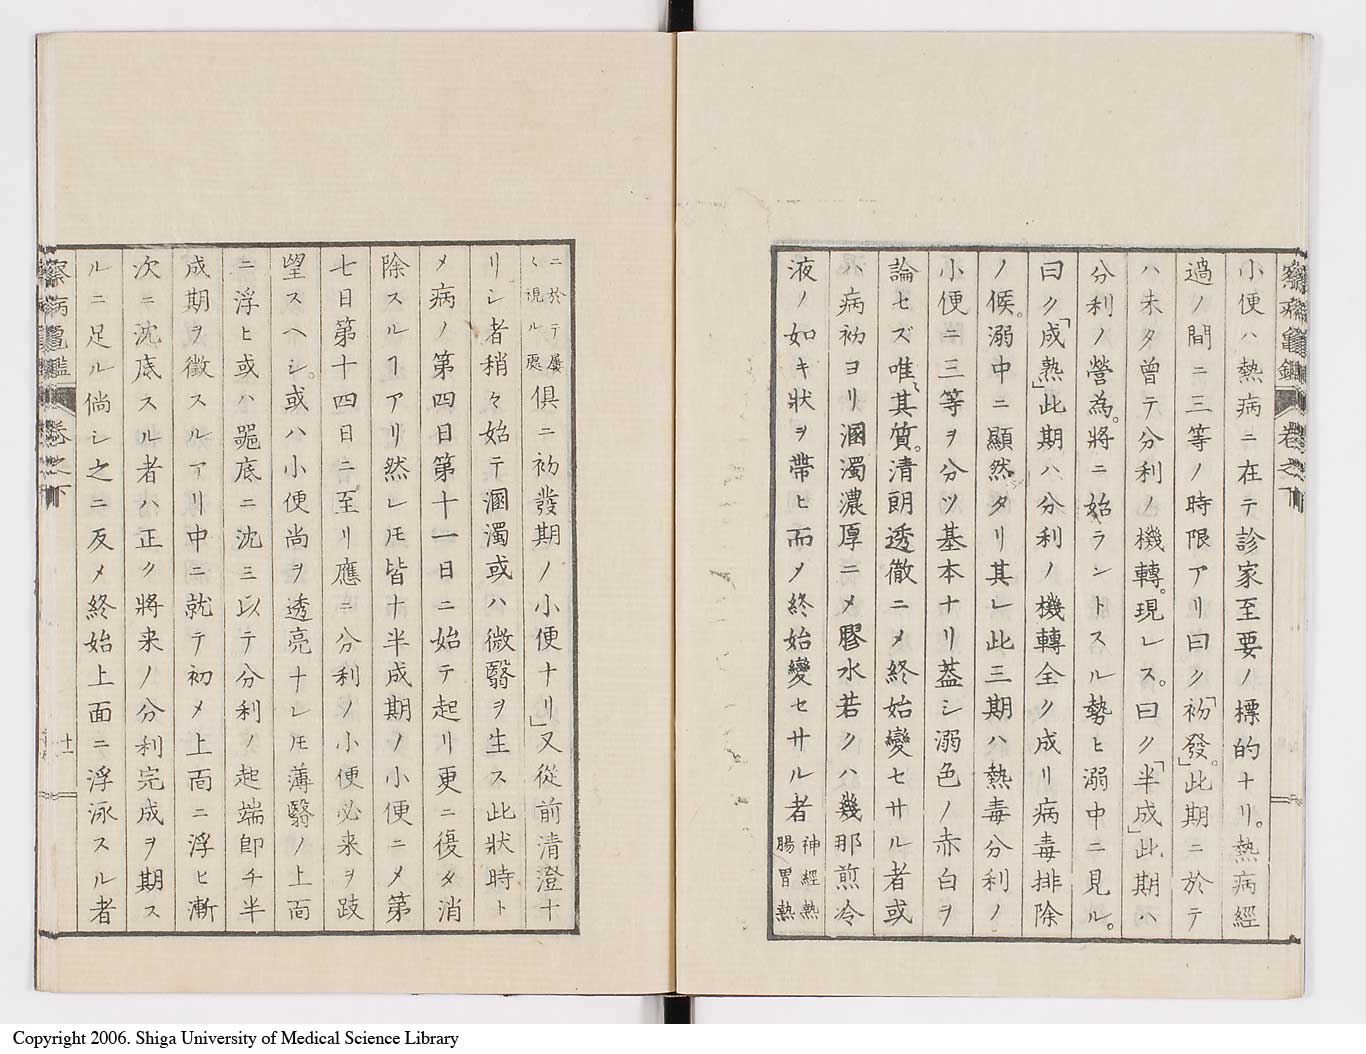 察病亀鑑 卷之下
小便ハ熱病ニ在テ診家至要ノ標的ナリ。熱病經
過ノ間ニ三等ノ時限アリ曰ク「初發。」此期ニ於テ
ハ未タ曾テ分利ノ機轉。現レス。曰ク「半成」此期ハ
分利ノ營為。將ニ始ラントスル勢ヒ溺中ニ見ル。
曰ク「成熟」此期ハ分利ノ機轉全ク成リ病毒排除
ノ候。溺中ニ顯然タリ其レ此三期ハ熱毒分利ノ
小便ニ三等ヲ分ツ基本ナリ蓋シ溺色ノ赤白ヲ
論セズ唯、其質。清朗透徹ニメ終始變セサル者或
ハ病初ヨリ溷濁濃厚ニメ膠水若クハ幾那煎冷
液ノ如キ狀ヲ帶ヒ而メ終始變セサル者神經熱腸胃熱
ニ於テ屢〻視ル處俱ニ初發期ノ小便ナリ」又從前清澄ナ
リシ者稍々始テ溷濁或ハ微翳ヲ生ス此狀時ト
メ病ノ第四日第十一日ニ始テ起リ更ニ復タ消
除スルヿアリ然レ𪜈皆ナ半成期ノ小便ニメ第
七日第十四日ニ至リ應ニ分利ノ小便必来ヲ跂
望スヘシ。或ハ小便尚ヲ透亮ナレ𪜈薄翳ノ上面
ニ浮ヒ或ハ器底ニ沈ミ以テ分利ノ起端卽チ半
成期ヲ徵スルアリ中ニ就テ初メ上面ニ浮ヒ漸
次ニ沈底スル者ハ正ク將来ノ分利完成ヲ期ス
ルニ足ル倘シ之ニ反メ終始上面ニ浮泳スル者
察病亀鑑 卷之下 十一
Copyright 2006. Shiga University of Medical Science Library